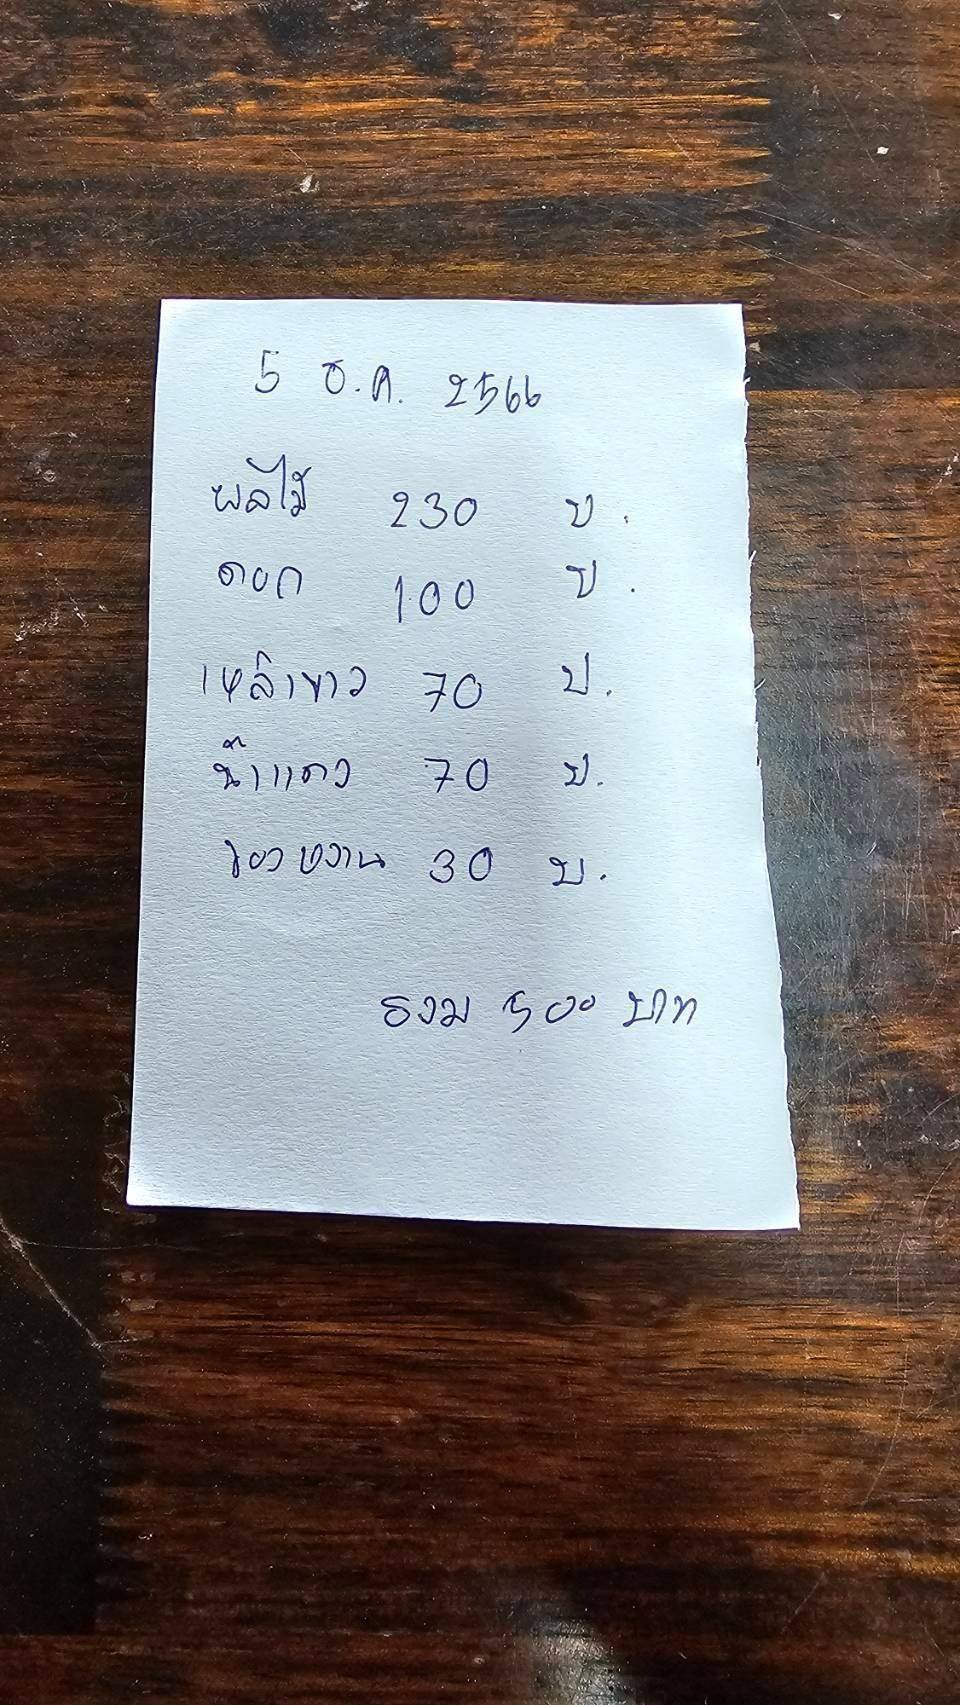 5 ธ.ค. 2566
ผลไม้ 230 บ.
ดอก 100 บ.
เหล้าขาว 70 บ.
น้ำแดง 70 บ.
ของหวาน 30 บ.
รวม 500 บาท